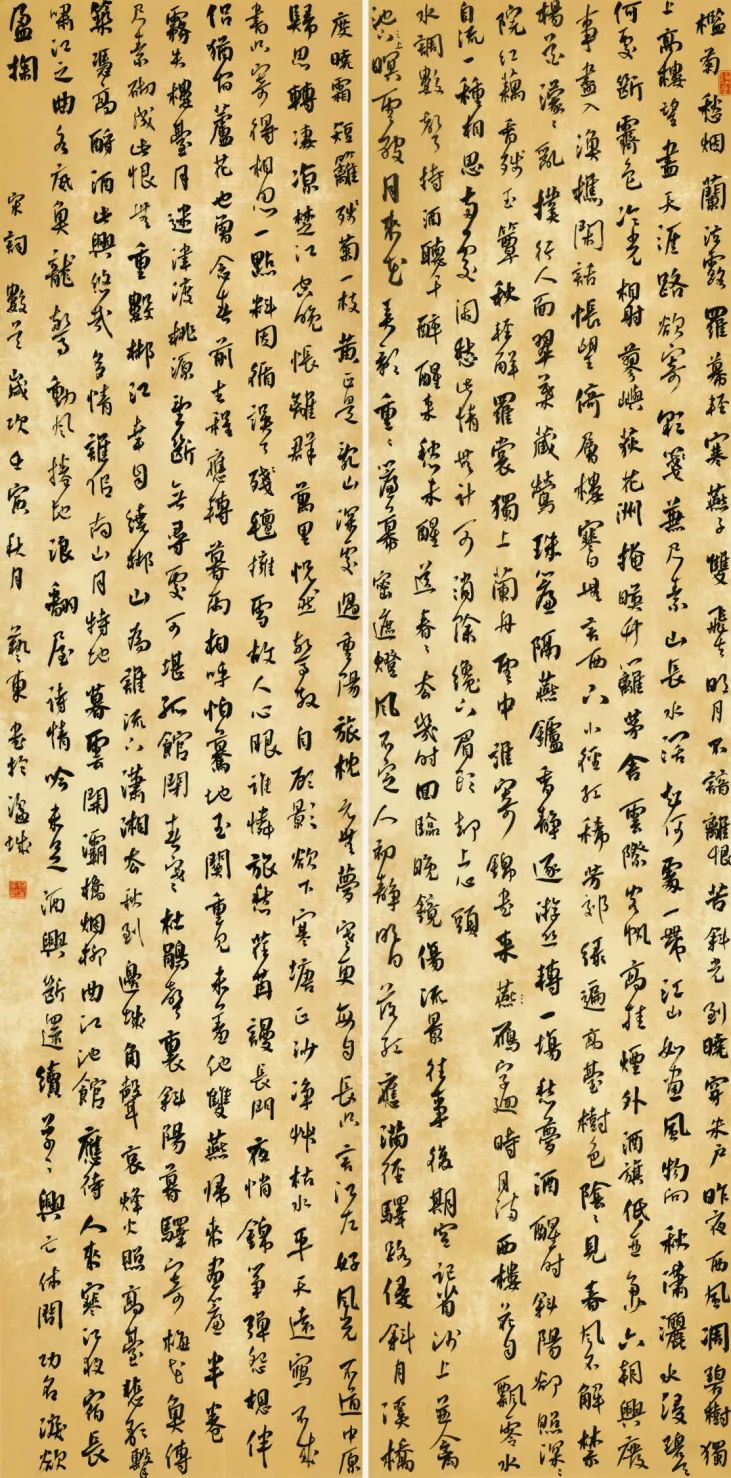 檻菊愁烟蘭泣露羅幕輕寒燕子雙飛去明月不諳離恨苦斜光到曉穿朱戶昨夜西風凋碧樹獨
上高樓望盡天涯路欲寄彩箋兼尺素山長水闊知何處一帶江山如畫風物向秋瀟灑水浸碧天
何處斷霽色冷光相射蓼嶼荻花洲掩映竹籬茅舍雲際客帆高挂煙外酒旗低亞多少六朝興廢
事盡入漁樵閒話悵望倚層樓寒日無言西下小徑紅稀芳郊綠遍高臺樹色陰陰見春風不解禁
楊花濛濛亂撲行人面翠葉藏鶯珠簾隔燕鑪香靜逐游絲轉一場愁夢酒醒時斜陽卻照深深
院紅藕香殘玉簟秋輕解羅裳獨上蘭舟雲中誰寄錦書來雁字迴時月滿西樓花自飄零水
自流一種相思兩處閒愁此情無計可消除纔下眉頭卻上心頭
水調數聲持酒聽午醉醒來愁未醒送春春去幾時回臨晚鏡傷流景往事後期空記省沙上並禽
池上暝雲破月來花弄影重重簾幕密遮燈風不定人初靜明日落紅應滿徑驛路侵斜月溪橋
度曉霜短籬殘菊一枝黃正是亂山深處過重陽旅枕元無夢寒更每自長只言江左好風光不道中原
歸思轉淒涼楚江空晚悵離群萬里恍然驚散自顧影欲下寒塘正沙淨草枯水平天遠寫不成
書只寄得相思一點料因循誤了殘氈擁雪故人心眼誰憐旅愁荏苒謾長門夜悄錦箏彈怨想伴
侶猶宿蘆花也曾念春前去程應轉暮雨相呼怕驀地玉關重見未羞他雙燕歸來畫簾半卷
霧失樓臺月迷津渡桃源望斷無尋處可堪孤館閉春寒杜鵑聲裏斜陽暮驛寄梅花魚傳
尺素砌成此恨無重數郴江幸自繞郴山為誰流下瀟湘去秋到邊城角聲哀烽火照高臺悲歌擊
築憑高酹酒此興悠哉多情誰似南山月特地暮雲開灞橋烟柳曲江池館應待人來寒江夜宿長
嘯江之曲水底魚龍驚動風捲地浪翻屋詩情吟未足酒興斷還續草草興亡休問功名淚欲
盈掬
宋詞數首歲次壬寅秋月藝東書於城